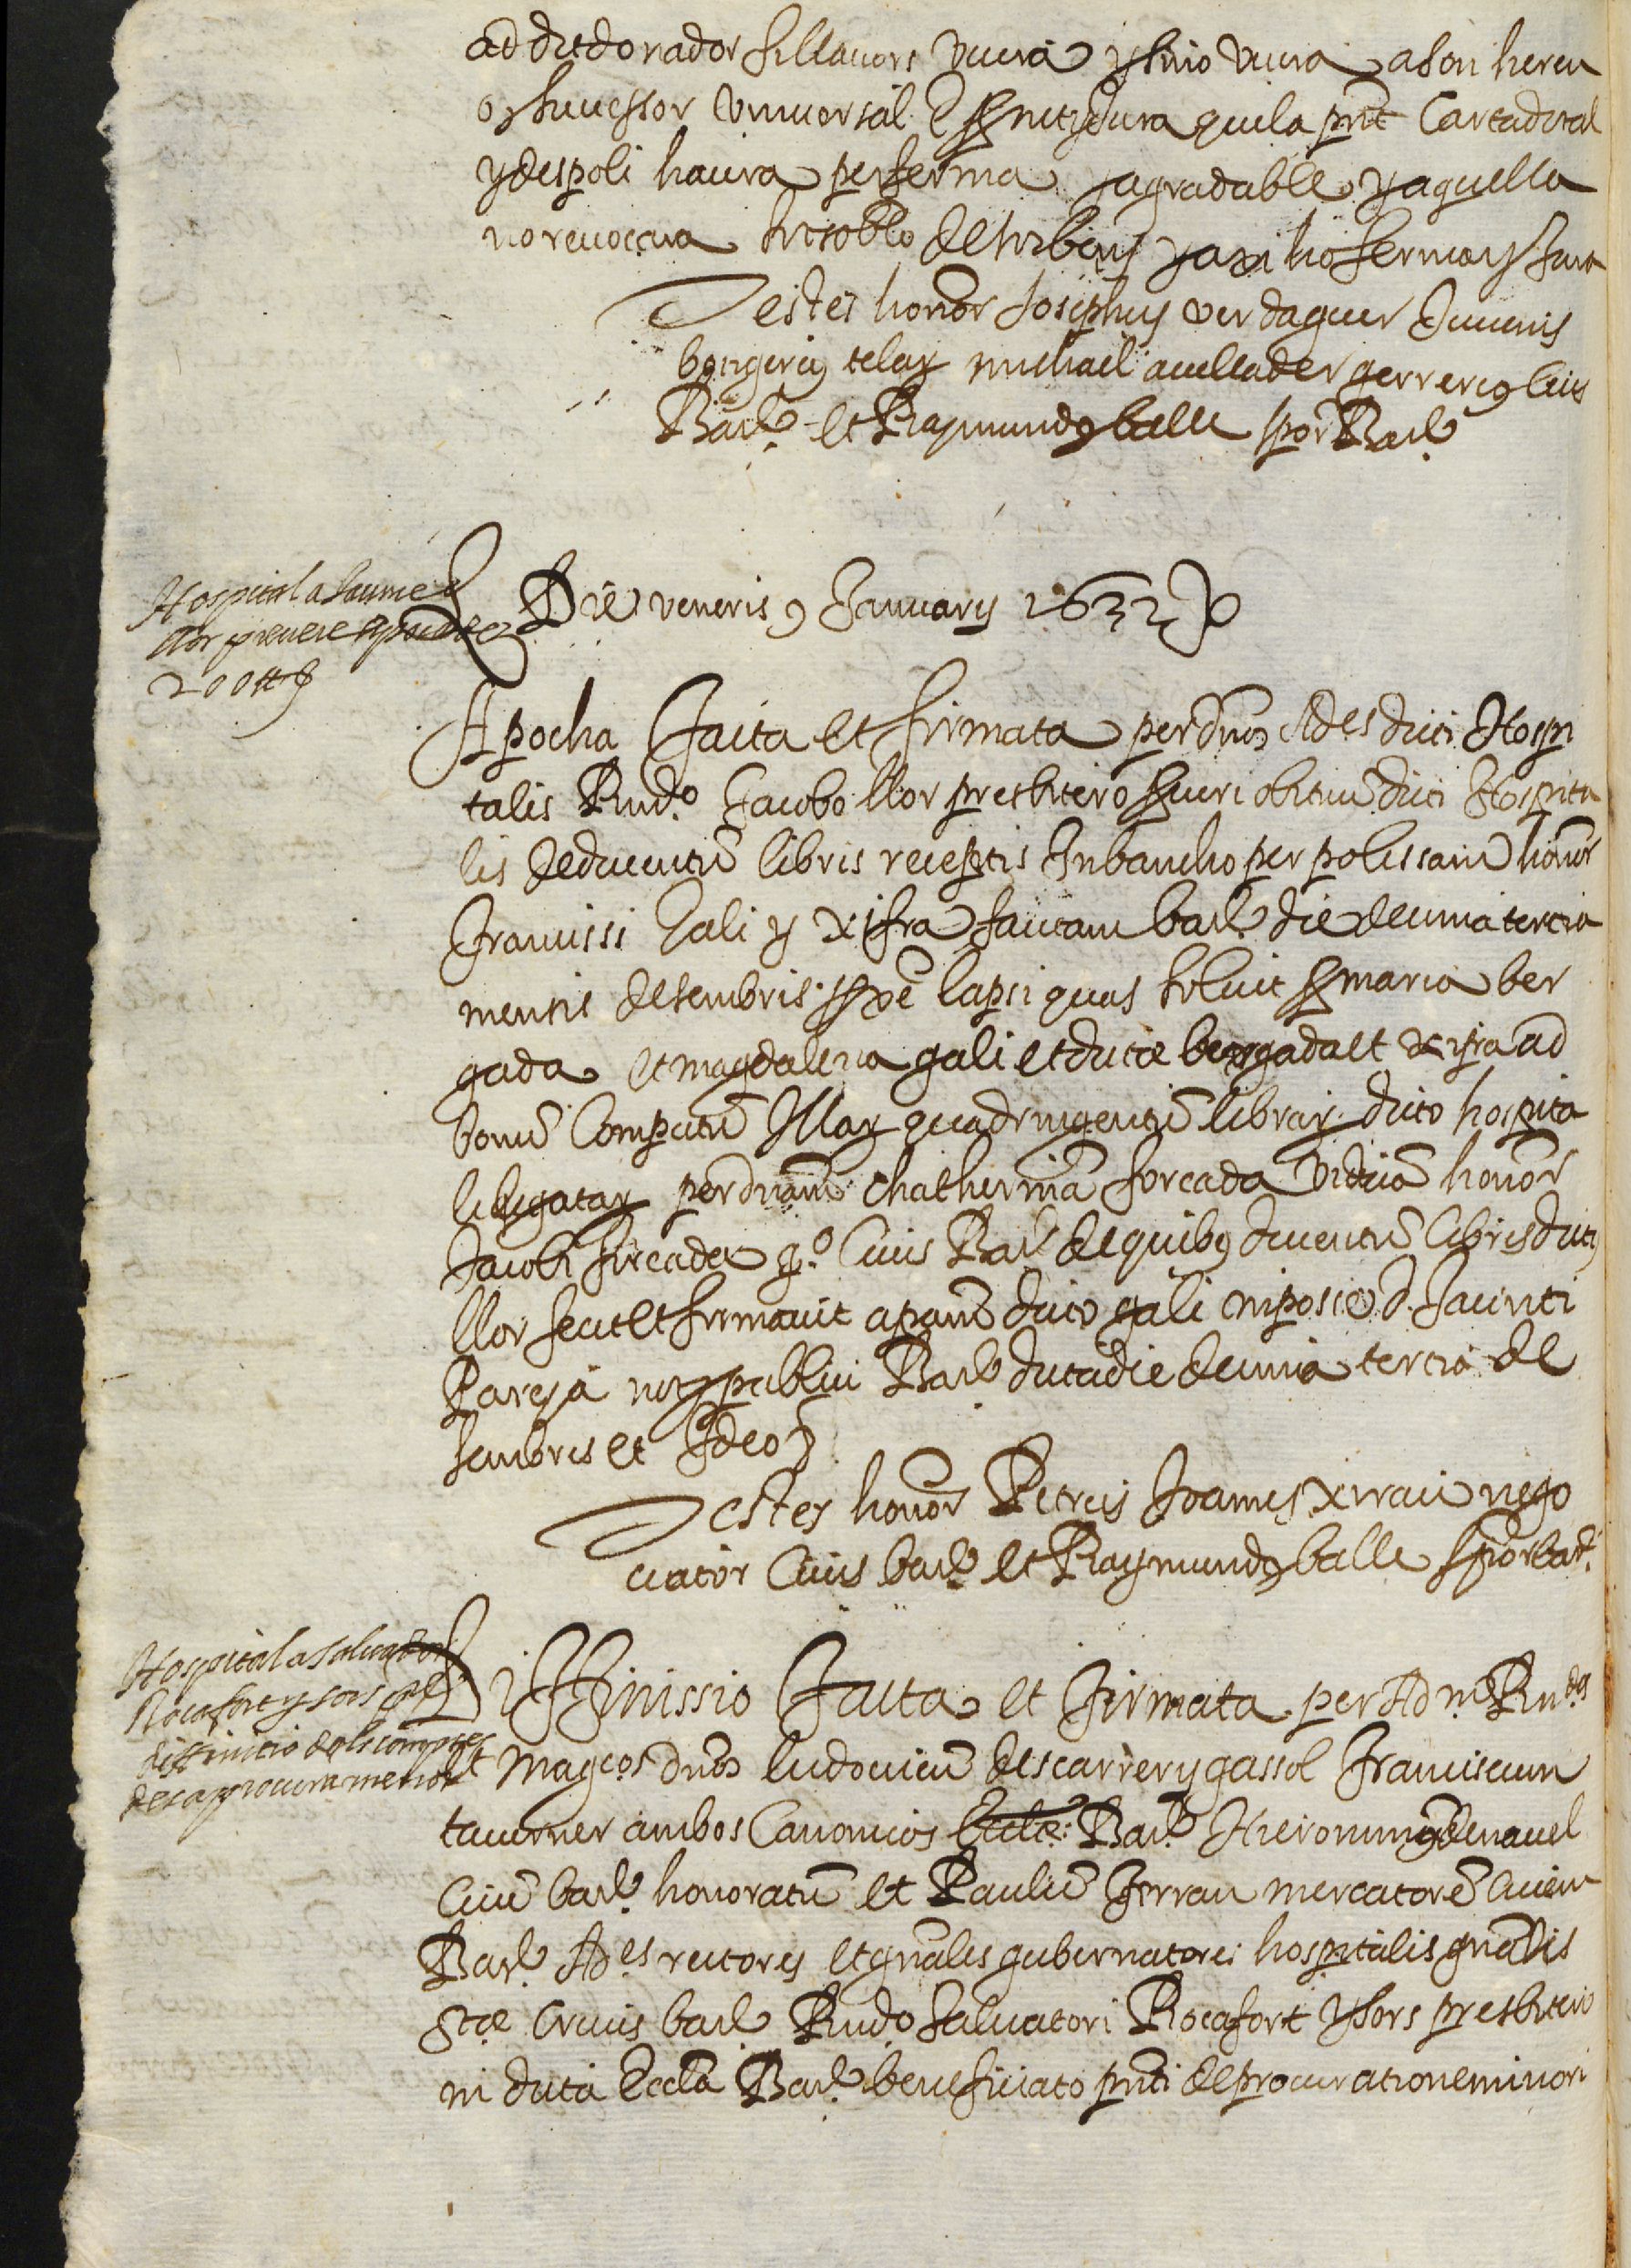 ad dit donador si llavors viura y si no viura a son hereu
o successor universal E prometi jura que la pnt Carta dotal
y despoli haura per ferma y agradable y aquella
no revoccara sots obblo de sos bens y axi ho ferma y jura
Testes honor Josephus verdaguer Juvenis
botigerius telar michael avellader gerrerius civis
Barl. et Raymundus balle spor Barl.
Hospital a Jaume
llor prevere apocha de
200 ll
Die veneris 9 Januarij 1632
Apocha facta et firmata per dnos Ades dicti Hospi
talis Rndo. Jacobo llor presbitero priori obituu dicti Hospita
lis de ducentu libris receptis In bancho per polissam honor
Francissi Gali y xifra factam barl. die decima tercia
mensis desembris pxe lapsi quas solvit pro maria ber
gada et magdalena gali et dicte bergada et xifra ad
bonu Computu Illar quadringentu librar. dicto hospita
li legatar per dnam chatherina forcada vidua honor
Jacobi forcada qo. Civis Barl de quibus ducentu libris dictus
llor fecit et firmavit apocam dicto gali in posse d. Jacinti
Pareja not publici Barl dicta die decima tercia de
sembris et Ideo
Testes honor Petrus Joannes xirrau nego
ciator Civis barl. et Raymundus balle spor bar.
Hospital a Salvador
Rocafort y sors pre
diffinicio dels comptes
de sa procura menor
Diffinissio facta et firmata per Adm. Rndos
et Magcos dnos ludovicu descarrer y gassol Franciscum
taverner ambos Canonicos Barl. Hieronimu de navel
Cive barl. honoratu et Pauliu Ferran mercatore Civem
Barl. Ades rectores et gnales gubernatores hospitalis gnalis
Ste Crucis barl Rndo Salvatori Rocafort y sors presbitero
in dicta Eccla Barl. beneficiato pnti de procuratione minori